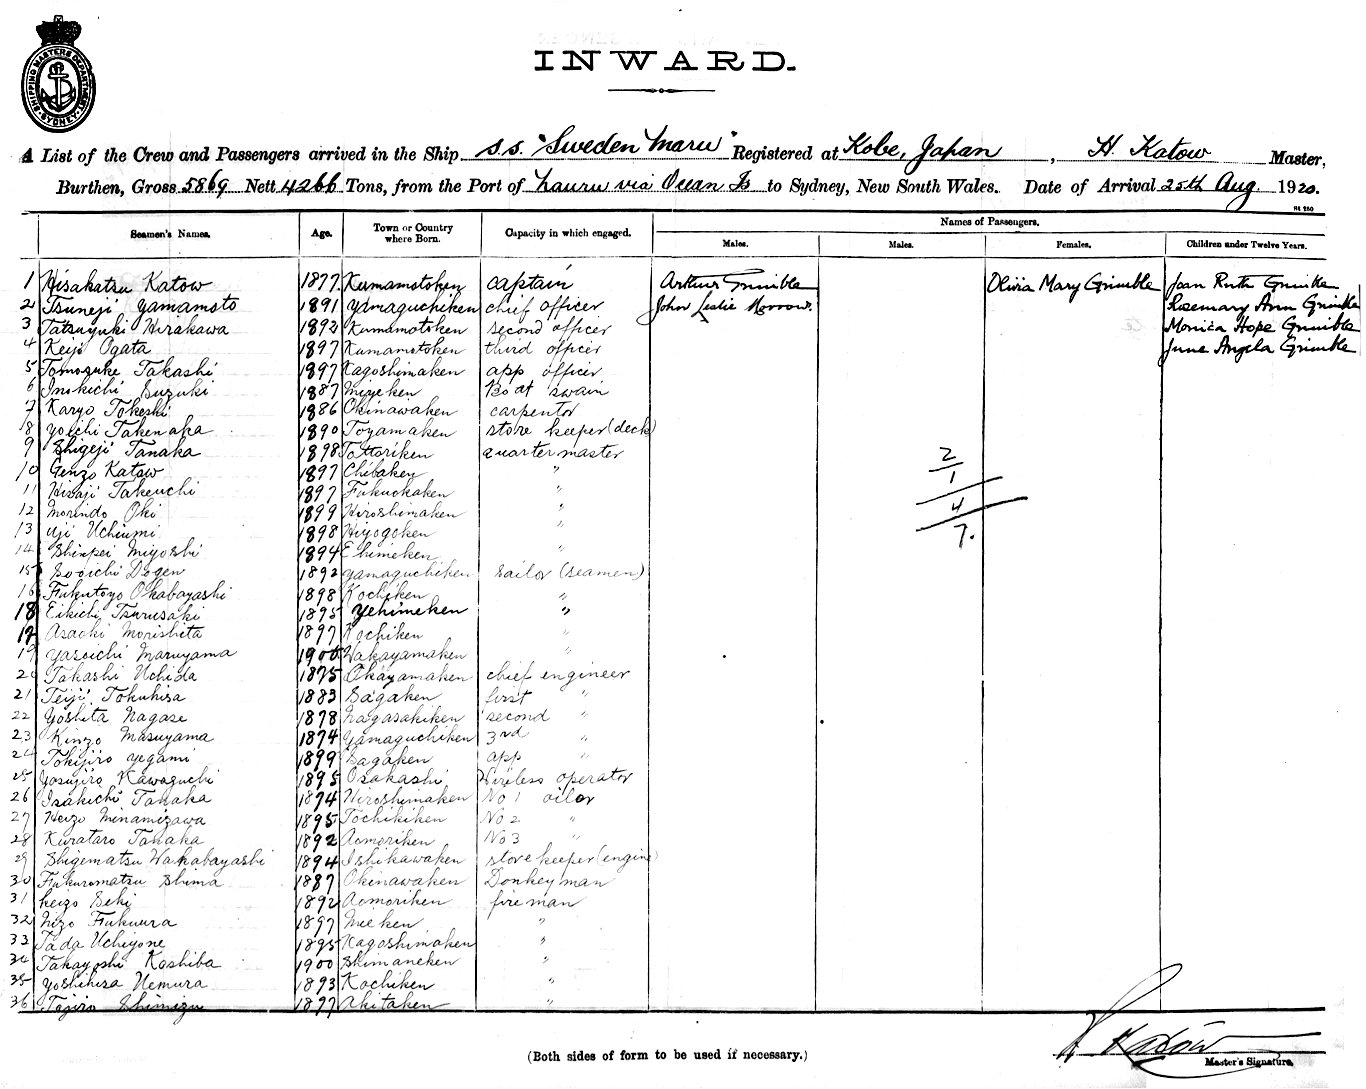 SHIPPING MASTERS DEPARTMENT
SYDNEY
INWARD.
A List of the Crew and Passengers arrived in the Ship S.S. "Sweden Maru" Registered at Kobe, Japan, H. Katow Master,
Burthen, Gross 5869 Nett 4266 Tons, from the Port of Nauru via Ocean Is to Sydney, New South Wales. Date of Arrival 25th Aug. 1920.
Seamen's Names. Age. Town or Country where Born. Capacity in which engaged. Names of Passengers.
Males. Males. Females. Children under Twelve Years.
1 Hisakatsu Katow 1877 Kumamotoken captain Arthur Grimble Olivia Mary Grimble Joan Ruth Grimble
2 Tsuneji Yamamoto 1891 Yamaguchiken chief officer John Leslie Morrow. Rosemary Ann Grimble
3 Tatsuyuki Hirakawa 1892 Kumamotoken second officer Monica Hope Grimble
4 Keiji Ogata 1897 Kumamotoken third officer June Angela Grimble
5 Tomosuke Takashi 1897 Kagoshimaken app officer
6 Inokichi Suzuki 1887 Miyeken Boat swain
7 Karyo Tokeshi 1886 Okinawaken carpentor
8 Yoichi Takenaka 1890 Toyamaken store keeper (deck)
9 Shigeji Tanaka 1898 Tottoriken quartermaster
10 Genzo Katow 1897 Chibaken "
11 Hisaji Takeuchi 1897 Fukuokaken "
12 Morindo Oki 1899 Hiroshimaken "
13 Uji Uchiumi 1898 Hiyogoken "
14 Shinpei Miyoshi 1894 Ehimeken "
15 Sooichi Dogen 1892 Yamaguchiken sailor (seamen)
16 Fukutoyo Okabayashi 1898 Kochiken "
18 Eikichi Tsurusaki 1895 Yehimeken "
Asaoki Morishita 1897 Kochiken "
19 Yasoichi Maruyama 1900 Wakayamaken "
20 Takashi Uchida 1875 Okayamaken chief engineer
21 Teiji Tokuhisa 1883 Sagaken first "
22 Yoshita Nagase 1878 Nagasakiken second "
23 Kinzo Masuyama 1874 Yamaguchiken 3rd "
24 Tokijiro Yegami 1899 Sagaken app "
25 Yosujiro Kawaguchi 1895 Osakashi Wireless operator
26 Isakichi Tanaka 1874 Hiroshimaken No 1 oiler
27 Heizo Minamizawa 1895 Tochikiken No 2 "
28 Kurataro Tanaka 1892 Aomoriken No 3 "
29 Shigematsu Wakabayashi 1894 Ishikawaken store keeper (engine)
30 Fukuromatsu Shima 1887 Okinawaken Donkeyman
31 Keizo Seki 1892 Aomoriken fireman
32 Nizo Fukuura 1897 Mieken "
33 Tada Uchiyone 1895 Kagoshimaken "
34 Takayoshi Koshiba 1900 Shimaneken "
35 Yoshihisa Uemura 1893 Kochiken "
36 Tojiro Shimizu 1897 Akitaken "
2
1
4
7.
H Katow
Master's Signature.
(Both sides of form to be used if necessary.)